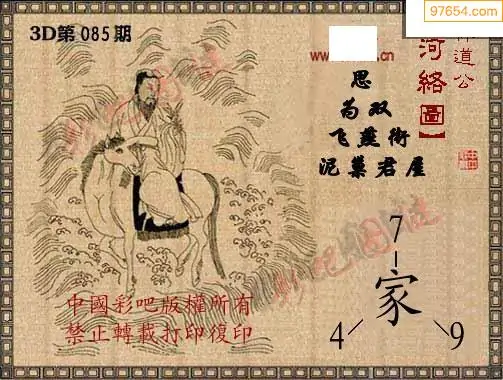 97654.com
3D第085期
道公
河络圖】
.cn
思
为双
飞燕衔
泥巢君屋
7
家
4 9
中國彩吧版權所有
禁止轉載打印復印